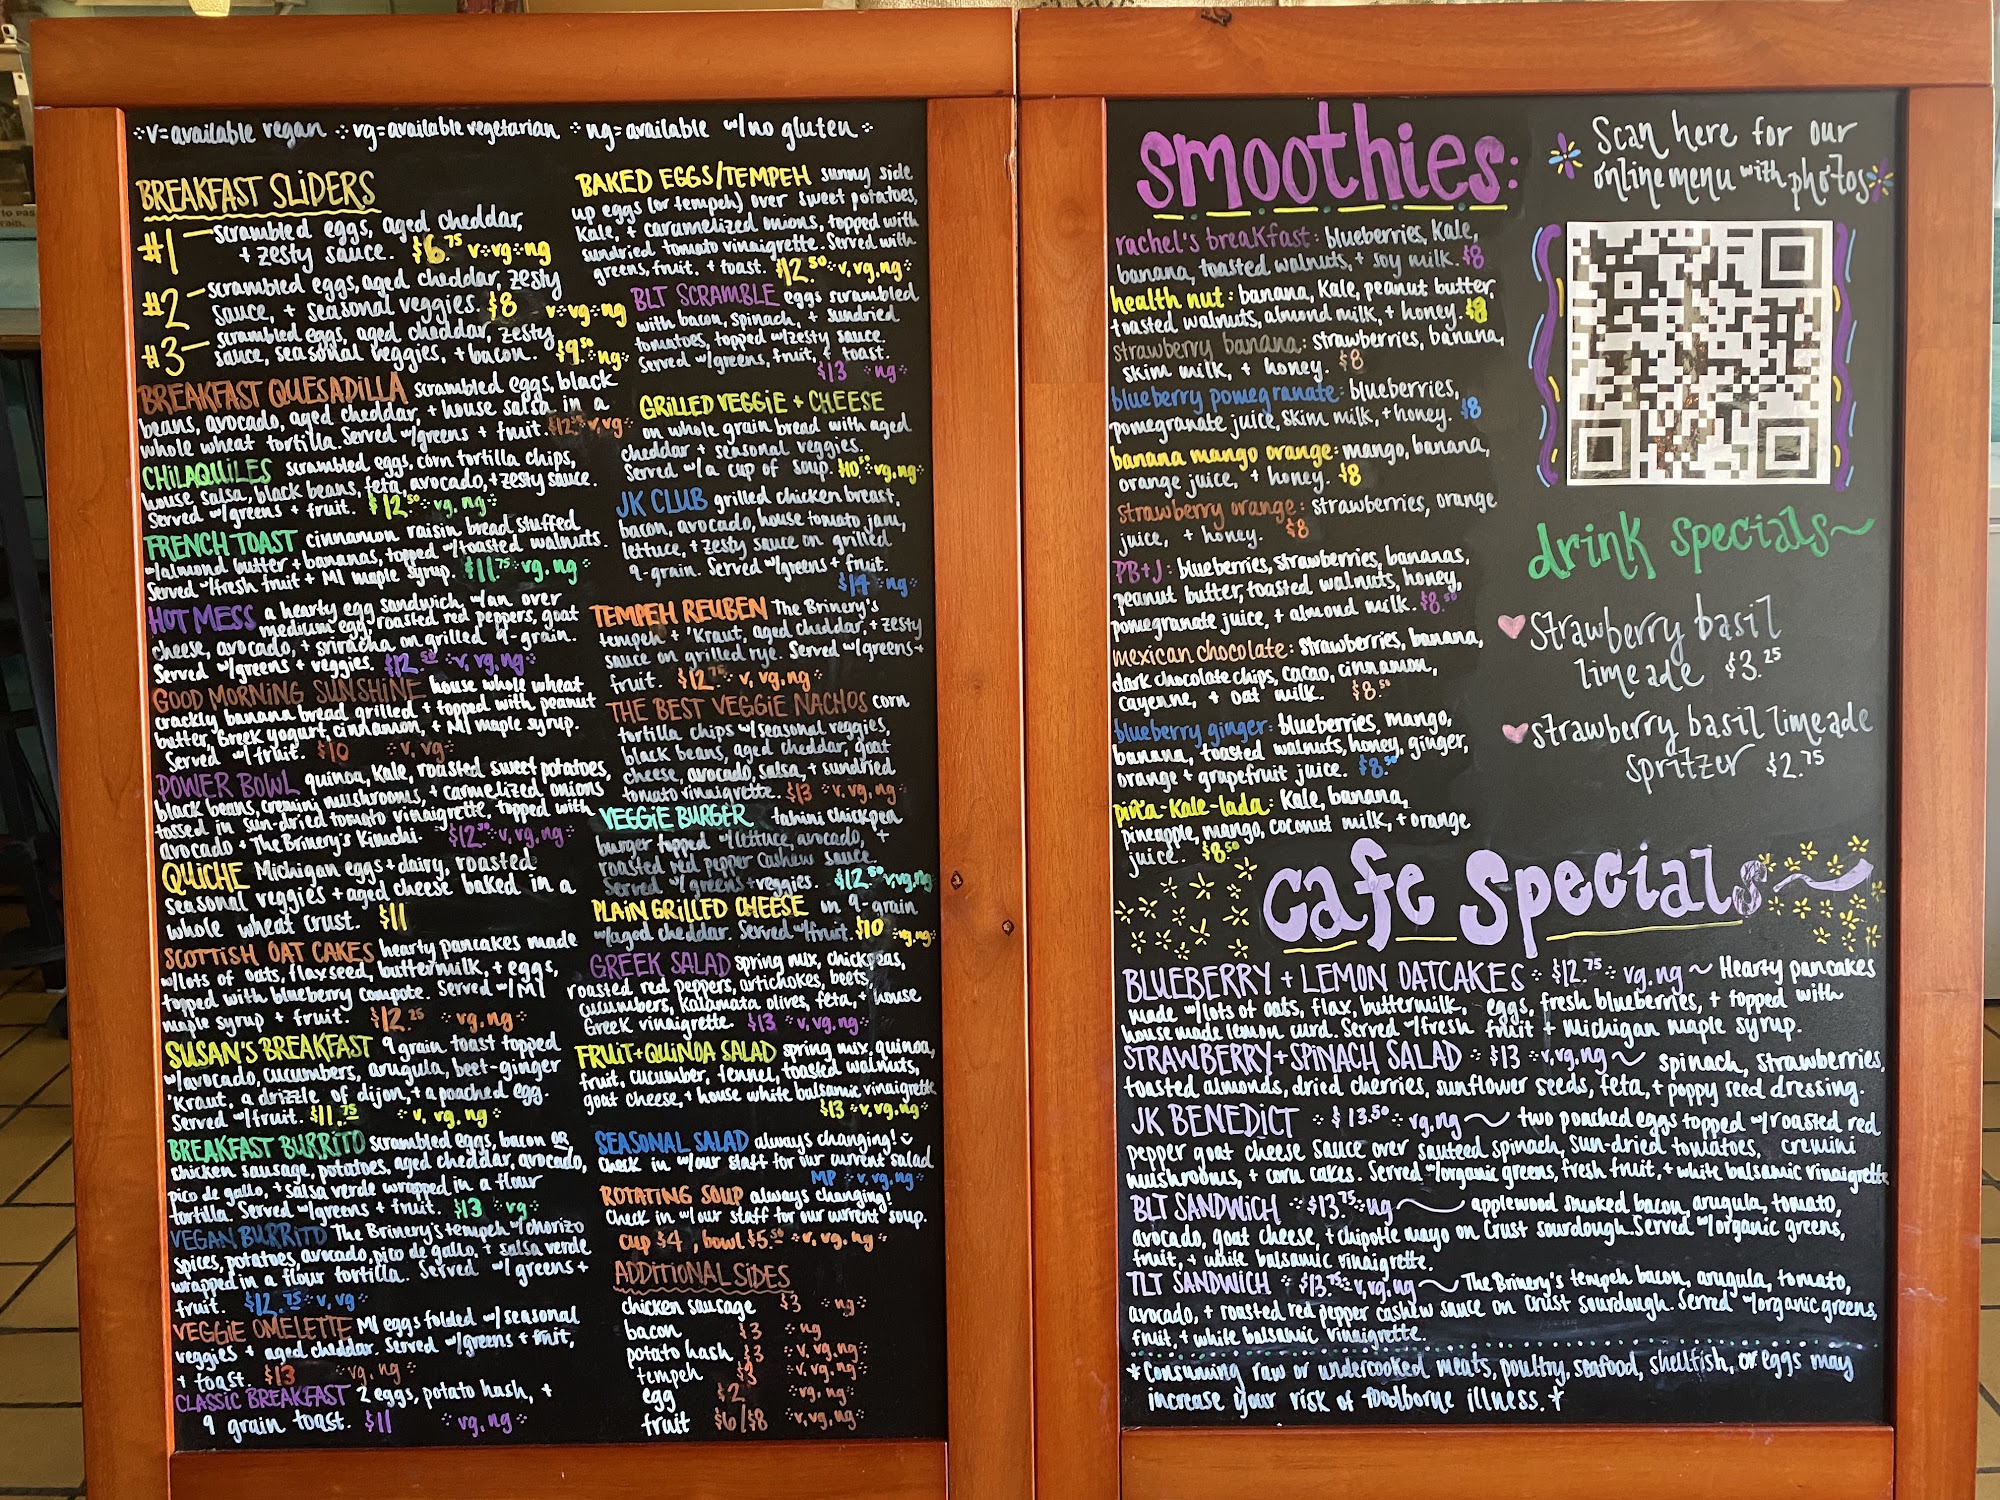 v=available vegan vg=available vegetarian ng=available w/no gluten
BREAKFAST SLIDERS
#1 scrambled eggs, aged cheddar,
+ zesty sauce. $6.75 v vg ng
#2 scrambled eggs, aged cheddar, zesty
sauce, + seasonal veggies. $8 v vg ng
#3 scrambled eggs, aged cheddar, zesty
sauce, seasonal veggies, + bacon. $9.50 ng
BREAKFAST QUESADILLA scrambled eggs, black
beans, avocado, aged cheddar, + house salsa in a
whole wheat tortilla. Served w/greens + fruit. v, vg
CHILAQUILES scrambled eggs, corn tortilla chips,
house salsa, black beans, feta, avocado, + zesty sauce.
Served w/greens + fruit. $12.50 vg, ng
FRENCH TOAST cinnamon raisin bread stuffed
w/almond butter + bananas, topped w/toasted walnuts.
Served w/fresh fruit + MI maple syrup. $11.75 vg, ng
HOT MESS a hearty egg sandwich, w/an over
medium egg, roasted red peppers, goat
cheese, avocado, + sriracha on grilled 9-grain.
Served w/greens + veggies. $12.50 v, vg, ng
GOOD MORNING SUNSHINE house whole wheat
crackly banana bread grilled + topped with peanut
butter, Greek yogurt, cinnamon, + MI maple syrup.
Served w/fruit. $10 v, vg
POWER BOWL quinoa, Kale, roasted sweet potatoes,
black beans, cremini mushrooms, + carmelized onions
tossed in sun-dried tomato vinaigrette, topped with
avocado + The Brinery's Kimchi. $12.50 v, vg, ng
QUICHE Michigan eggs + dairy, roasted
seasonal veggies + aged cheese baked in a
whole wheat crust. $11
SCOTTISH OAT CAKES hearty pancakes made
w/lots of oats, flaxseed, buttermilk, + eggs,
topped with blueberry compote. Served w/MI
maple syrup + fruit. $12.25 vg, ng
SUSAN'S BREAKFAST 9 grain toast topped
w/avocado, cucumbers, arugula, beet-ginger
'Kraut, a drizzle of dijon, + a poached egg.
Served w/fruit. $11.75 v, vg, ng
BREAKFAST BURRITO scrambled eggs, bacon OR
chicken sausage, potatoes, aged cheddar, avocado,
pico de gallo, + salsa verde wrapped in a flour
tortilla. Served w/greens + fruit. $13 vg
VEGAN BURRITO The Brinery's tempeh w/chorizo
spices, potatoes, avocado, pico de gallo, + salsa verde
wrapped in a flour tortilla. Served w/greens +
fruit. $12.75 v, vg
VEGGIE OMELETTE MI eggs folded w/seasonal
veggies + aged cheddar. Served w/greens + fruit,
+ toast. $13 vg, ng
CLASSIC BREAKFAST 2 eggs, potato hash, +
9 grain toast. $11 vg, ng
BAKED EGGS/TEMPEH sunny side
up eggs (or tempeh) over sweet potatoes,
Kale, + caramelized onions, topped with
sundried tomato vinaigrette. Served with
greens, fruit, + toast. $12.50 v, vg, ng
BLT SCRAMBLE eggs scrambled
with bacon, spinach, + sundried
tomatoes, topped w/zesty sauce.
Served w/greens, fruit, + toast.
$13 ng
GRILLED VEGGIE + CHEESE
on whole grain bread with aged
cheddar + seasonal veggies.
Served w/a cup of soup. vg, ng
JK CLUB grilled chicken breast,
bacon, avocado, house tomato jam,
lettuce, + zesty sauce on grilled
9-grain. Served w/greens + fruit.
$14 ng
TEMPEH REUBEN The Brinery's
tempeh + 'Kraut, aged cheddar, + zesty
sauce on grilled rye. Served w/greens +
fruit. $12.75 v, vg, ng
THE BEST VEGGIE NACHOS corn
tortilla chips w/seasonal veggies,
black beans, aged cheddar, goat
cheese, avocado, salsa, + sundried
tomato vinaigrette. $13 v, vg, ng
VEGGIE BURGER tahini chickpea
burger topped w/lettuce, avocado, +
roasted red pepper cashew sauce.
Served w/greens + veggies. $12.50 v, vg, ng
PLAIN GRILLED CHEESE on 9-grain
w/aged cheddar. Served w/fruit. $10 vg, ng
GREEK SALAD spring mix, chickpeas,
roasted red peppers, artichokes, beets,
cucumbers, Kalamata olives, feta, + house
Greek vinaigrette. $13 v, vg, ng
FRUIT + QUINOA SALAD spring mix, quinoa,
fruit, cucumber, fennel, toasted walnuts,
goat cheese, + house white balsamic vinaigrette
$13 v, vg, ng
SEASONAL SALAD always changing!
Check in w/our staff for our current salad
MP v, vg, ng
ROTATING SOUP always changing!
Check in w/our staff for our current soup.
cup $4, bowl $5.50 v, vg, ng
ADDITIONAL SIDES
chicken sausage $3 ng
bacon $3 ng
potato hash $3 v, vg, ng
tempeh $3 v, vg, ng
egg $2 vg, ng
fruit $6/$8 v, vg, ng
smoothies:
rachel's breakfast: blueberries, Kale,
banana, toasted walnuts, + soy milk. $8
health nut: banana, Kale, peanut butter,
toasted walnuts, almond milk, + honey. $8
strawberry banana: strawberries, banana,
skim milk, + honey. $8
blueberry pomegranate: blueberries,
pomegranate juice, skim milk, + honey. $8
banana mango orange: mango, banana,
orange juice, + honey. $8
strawberry orange: strawberries, orange
juice, + honey. $8
PB+J: blueberries, strawberries, bananas,
peanut butter, toasted walnuts, honey,
pomegranate juice, + almond milk. $8.50
mexican chocolate: strawberries, banana,
dark chocolate chips, cacao, cinnamon,
cayenne, + oat milk. $8.50
blueberry ginger: blueberries, mango,
banana, toasted walnuts, honey, ginger,
orange + grapefruit juice. $8.50
piña-Kale-lada: Kale, banana,
pineapple, mango, coconut milk, + orange
juice. $8.50
Scan here for our
online menu with photos
drink specials~
strawberry basil
limeade $3.25
strawberry basil limeade
spritzer $2.75
cafe specials~
BLUEBERRY + LEMON OATCAKES $12.75 vg, ng ~ Hearty pancakes
made w/lots of oats, flax, buttermilk, eggs, fresh blueberries, + topped with
house made lemon curd. Served w/fresh fruit + Michigan maple syrup.
STRAWBERRY + SPINACH SALAD $13 v, vg, ng ~ spinach, strawberries,
toasted almonds, dried cherries, sunflower seeds, feta, + poppy seed dressing.
JK BENEDICT $13.50 vg, ng ~ two poached eggs topped w/roasted red
pepper goat cheese sauce over sauteed spinach, sun-dried tomatoes, cremini
mushrooms, + corn cakes. Served w/organic greens, fresh fruit, + white balsamic vinaigrette
BLT SANDWICH $13.75 ng ~ applewood smoked bacon, arugula, tomato,
avocado, goat cheese, + chipotle mayo on Crust sourdough. Served w/organic greens,
fruit, + white balsamic vinaigrette.
TLT SANDWICH $13.75 v, vg, ng ~ The Brinery's tempeh bacon, arugula, tomato,
avocado, + roasted red pepper cashew sauce on Crust sourdough. Served w/organic greens,
fruit, + white balsamic vinaigrette.
*Consuming raw or undercooked meats, poultry, seafood, shellfish, or eggs may
increase your risk of foodborne illness.*